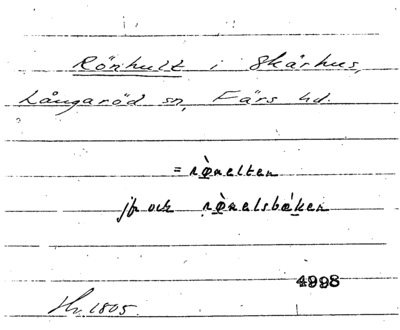 Rönhult i Skårhus,
Långaröd sn, Färs hd.
= rø̀nelten
jfr ock rø̀nelsbæken
4998
Hr. 1805.